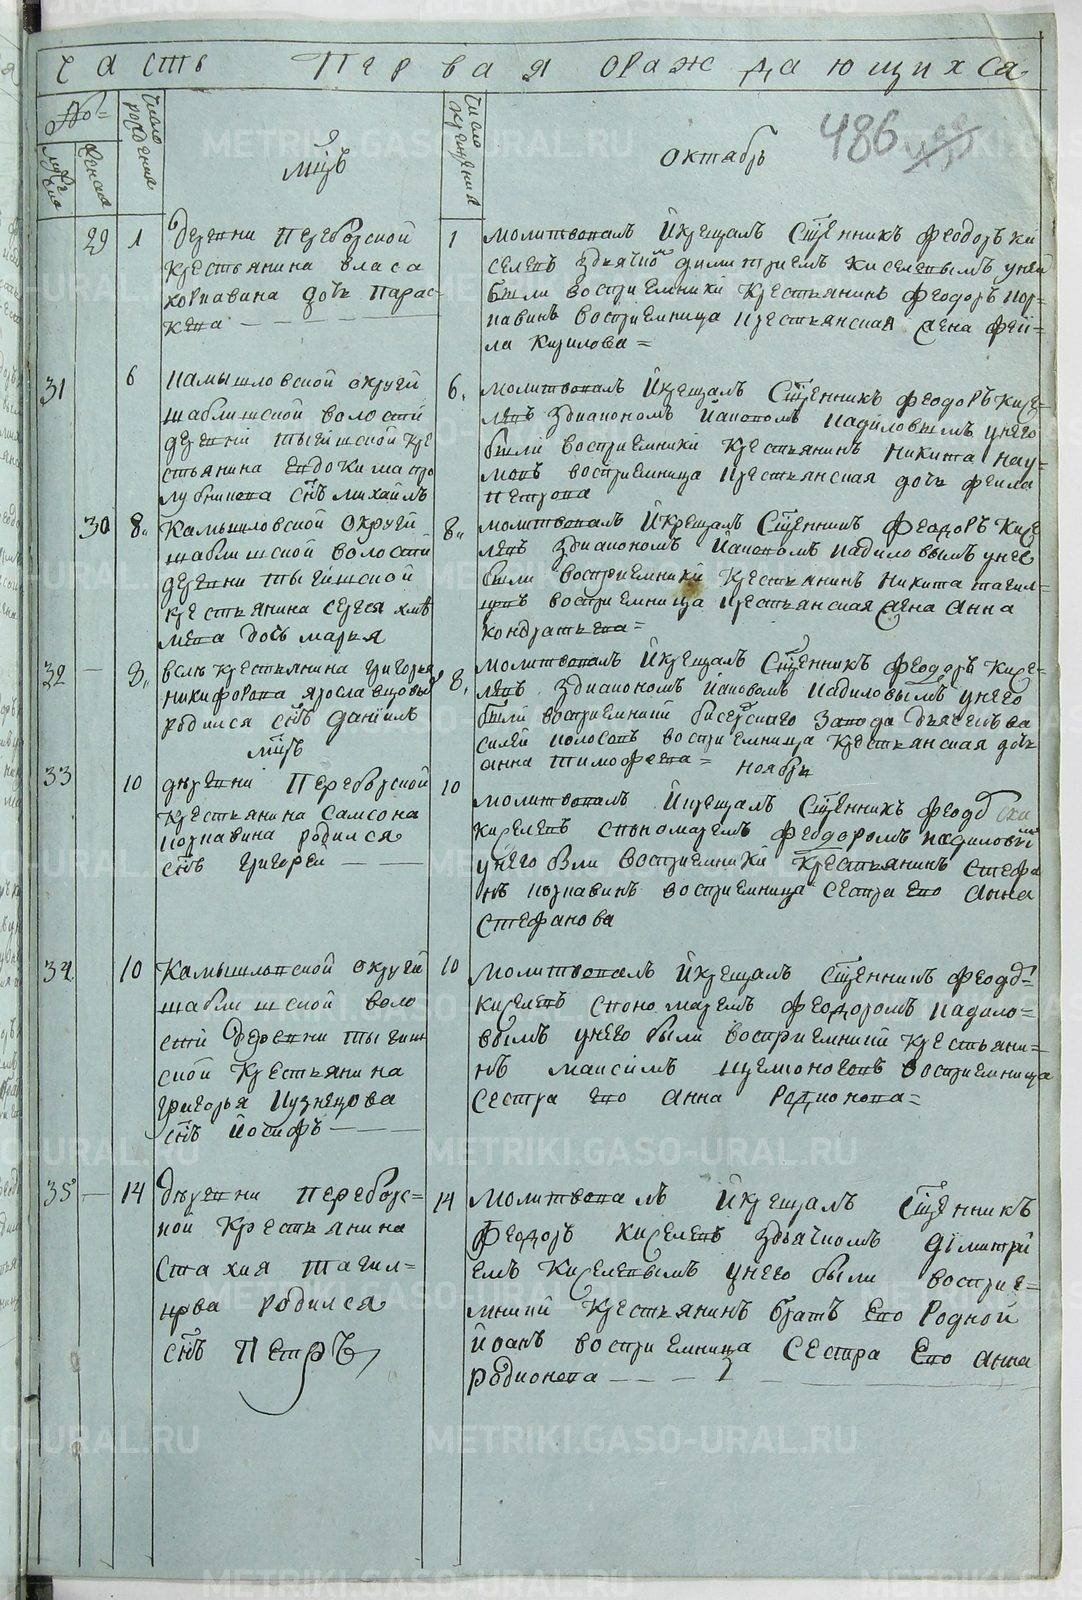 Часть Первая ораждающихса
№
мужеска
женска
число рождения
мцъ
число крещения
октябрь
486
29 1 деревни Переборской
крестьянина власа
корнавина дочь Парас-
кева
1 молитвовалъ Йкрещалъ Сщенникъ феодоръ ки
селевъ здьячкомъ димитриемъ киселевымъ унеи
были восприемники крестьянинъ феодоръ кор-
навинъ восприемница крестьянская жена феи-
ла Кирилова =
31 6 камышловской округи
шаблишской волости
деревни тыгишской кре
стьянина евдокима про
лубникова снъ михаилъ
6. молитвовалъ Йкрещалъ Сщенникъ феодоръ кисе-
левъ здиакономъ Иаковомъ кадиловымъ унего
были восприемники крестьянинъ никита нау-
мовъ восприемница крестьянская дочь феила
петрова
30 8 Камышловской округи
шаблишской волости
деревни тыгишской
крестьянина сергея хмѣ
лева дочь марья
8 молитвовалъ Йкрещалъ Сщенникъ феодоръ Кисе
левъ здиакономъ Иаковомъ кадиловымъ унее
были восприемники Крестьянинъ никита тагил-
цовъ восприемница крестьянская жена анна
кондратьева =
32 8 велъ крестьянина григорья
никифорова ярославцовы
родился снъ даніилъ
мцъ
8. молитвовалъ Йкрещалъ Сщенникъ феодоръ Кисе-
левъ здиакономъ Иаковомъ кадиловымъ унего
были восприемники бисерского завода дьяченъ ва
силеи колосовъ восприемница крестьянская дочь
анна тимофеева = ноябрь
33 10 деревни Переборской
крестьянина самсона
корнавина родился
снъ григореи
10 молитвовалъ Йкрещалъ Сщенникъ феодо
киселевъ спономаремъ феодоромъ кадиловы
унего были восприемники крестьянинъ стефа
нъ корнавинъ восприемница сестра его анна
стефанова
34 10 Камышловской округи
шаблишской воло
сти деревни тыгиш
ской крестьянина
григорья кузнецова
снъ Иосифъ
10 молитвовалъ Йкрещалъ Сщенникъ феодо
киселевъ спономаремъ феодоромъ кадило=
вымъ унего были восприемники крестьяни=
нъ максимъ восприемница
сестра его анна Родионова =
35 14 деревни переборс=
кой крестьянина
стахия тагил=
цова родился
снъ Петръ
14 молитвовалъ Йкрещалъ Сщенникъ
феодоръ киселевъ здьячкомъ димитри
емъ киселевымъ унего были восприе=
мники крестьянинъ братъ его родной
иоанъ восприемница сестра его анна
родионова